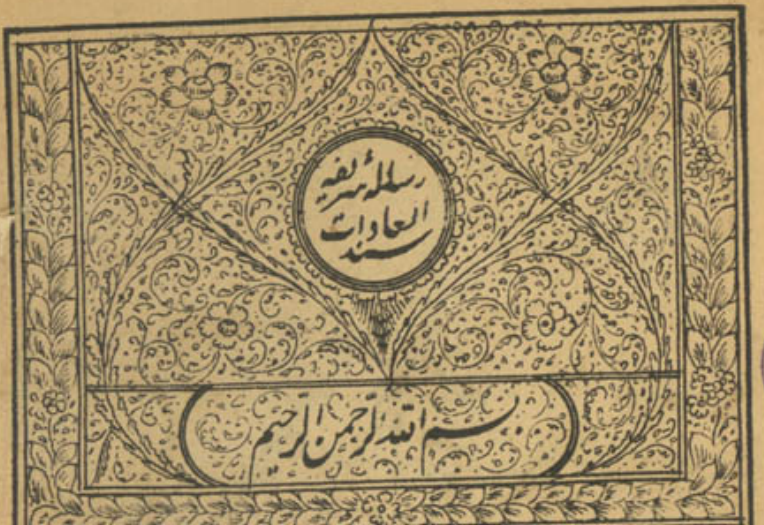 رسالهٔ شریفه
السعادات
سند
بسم الله الرحمن الرحیم